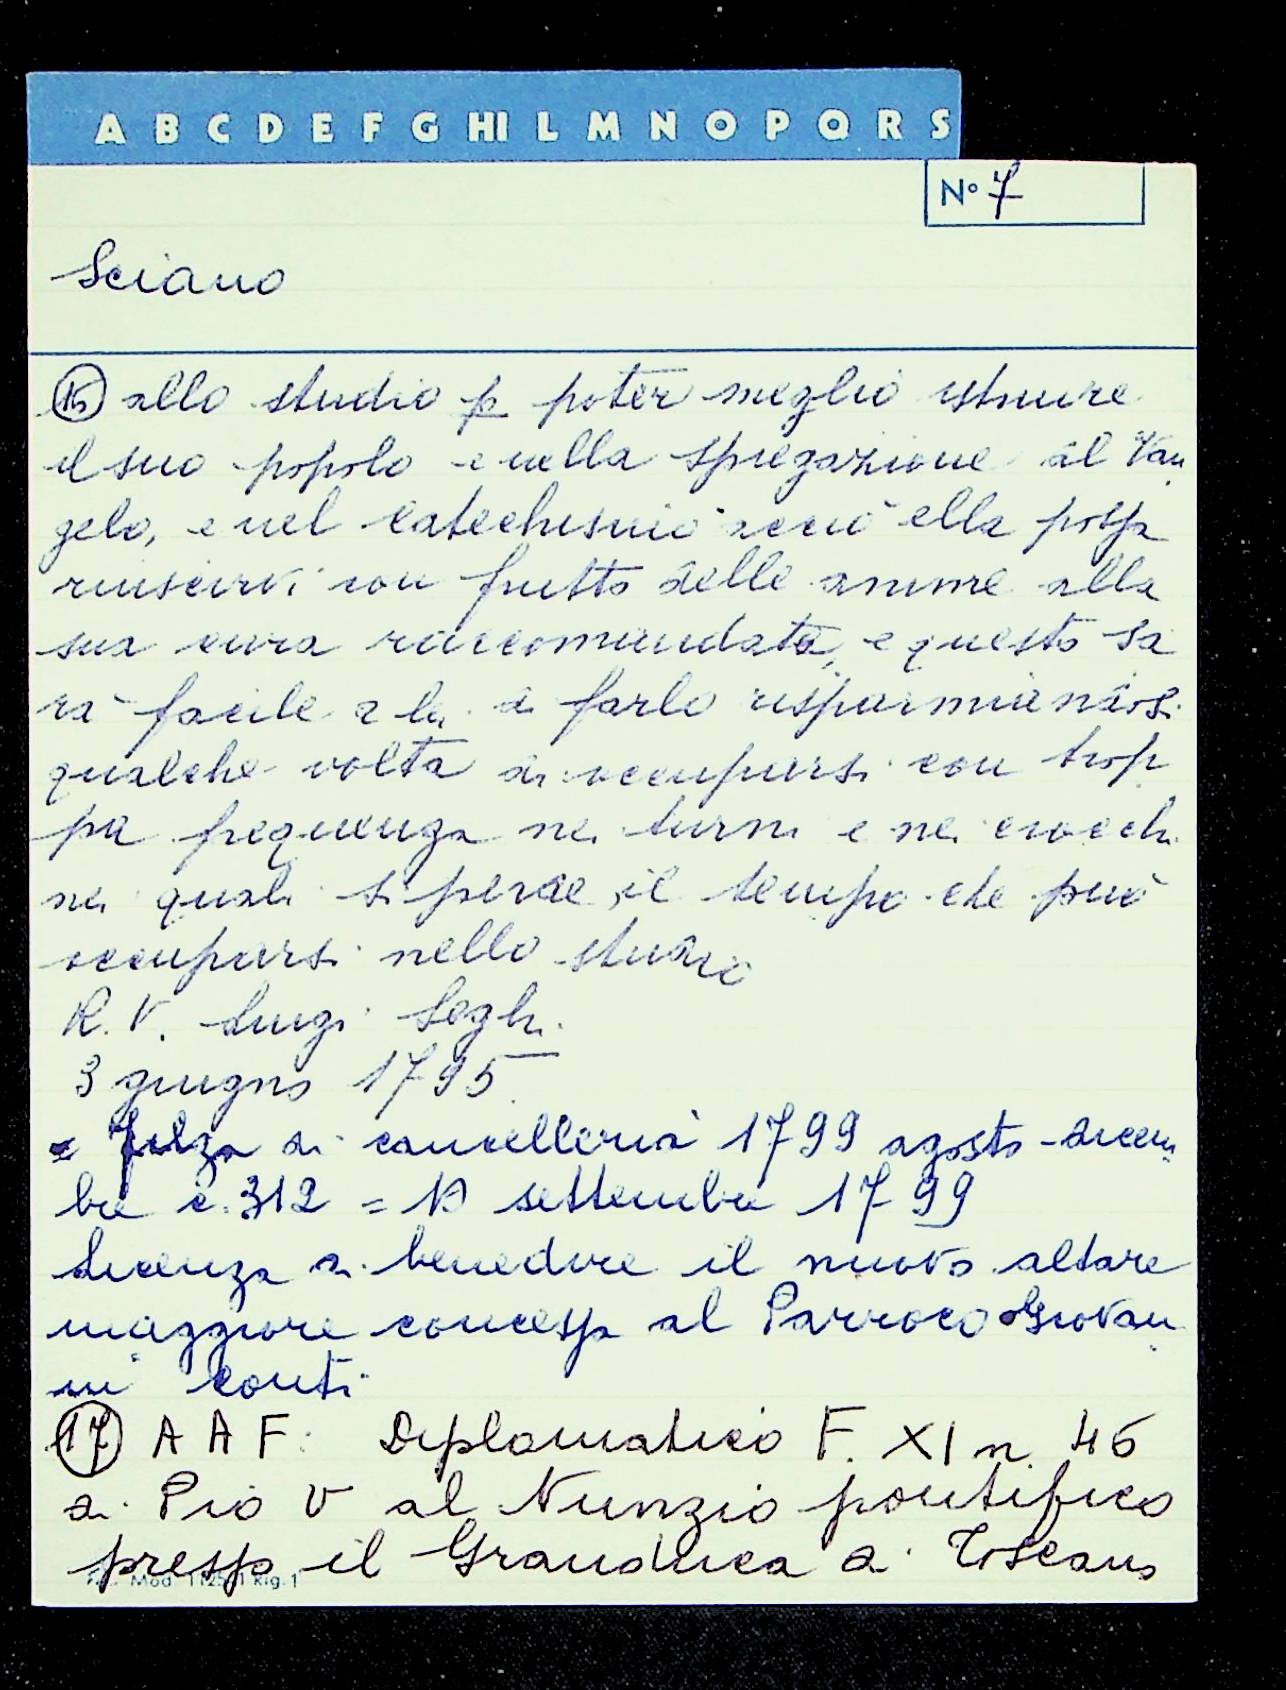 A B C D E F G HI L M N O P Q R S
N° 7
Sciano
15 allo studio p poter meglio istruire
il suo popolo e nella spiegazione al Van
gelo, e nel Catechismo acciò ella possa
riuscirvi con frutto delle anime alla
sua cura raccomandate, e questo sa
rà facile a lei di farlo risparmiandosi
qualche volta di occuparsi con trop
pa frequenza nei turni e nei crocchi
nei quali si perde il tempo che può
occuparsi nello studio
R. V. Luigi Seghi
3 giugno 1795
= Filza di cancelleria 1799 agosto - dicem
bre c. 312 = 19 settembre 1799
Licenza di benedire il nuovo altare
maggiore concessa al Parroco Giovan
ni Conti
17 A A F. Diplomatico F. XI n. 46
di Pio V al Nunzio pontificio
presso il Granduca di Toscana
Mod. 1125/1 Rig. 1